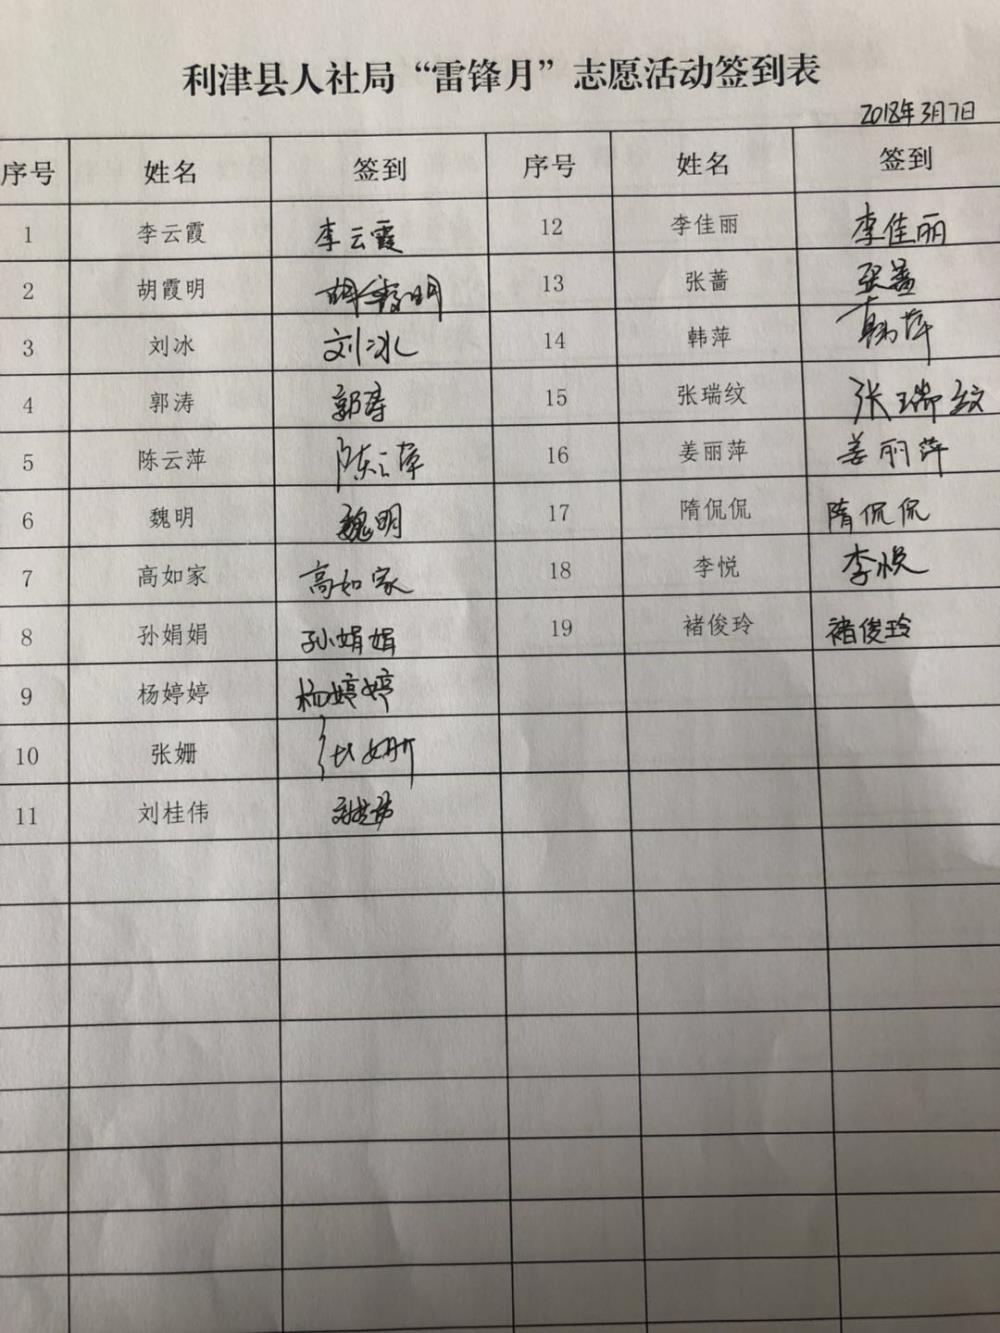 利津县人社局“雷锋月”志愿活动签到表
2018年3月7日
序号 姓名 签到 序号 姓名 签到
1 李云霞 李云霞 12 李佳丽 李佳丽
2 胡霞明 胡霞明 13 张蔷 张蔷
3 刘冰 刘冰 14 韩萍 韩萍
4 郭涛 郭涛 15 张瑞纹 张瑞纹
5 陈云萍 陈云萍 16 姜丽萍 姜丽萍
6 魏明 魏明 17 隋侃侃 隋侃侃
7 高如家 高如家 18 李悦 李悦
8 孙娟娟 孙娟娟 19 褚俊玲 褚俊玲
9 杨婷婷 杨婷婷
10 张姗 张姗
11 刘桂伟 刘桂伟